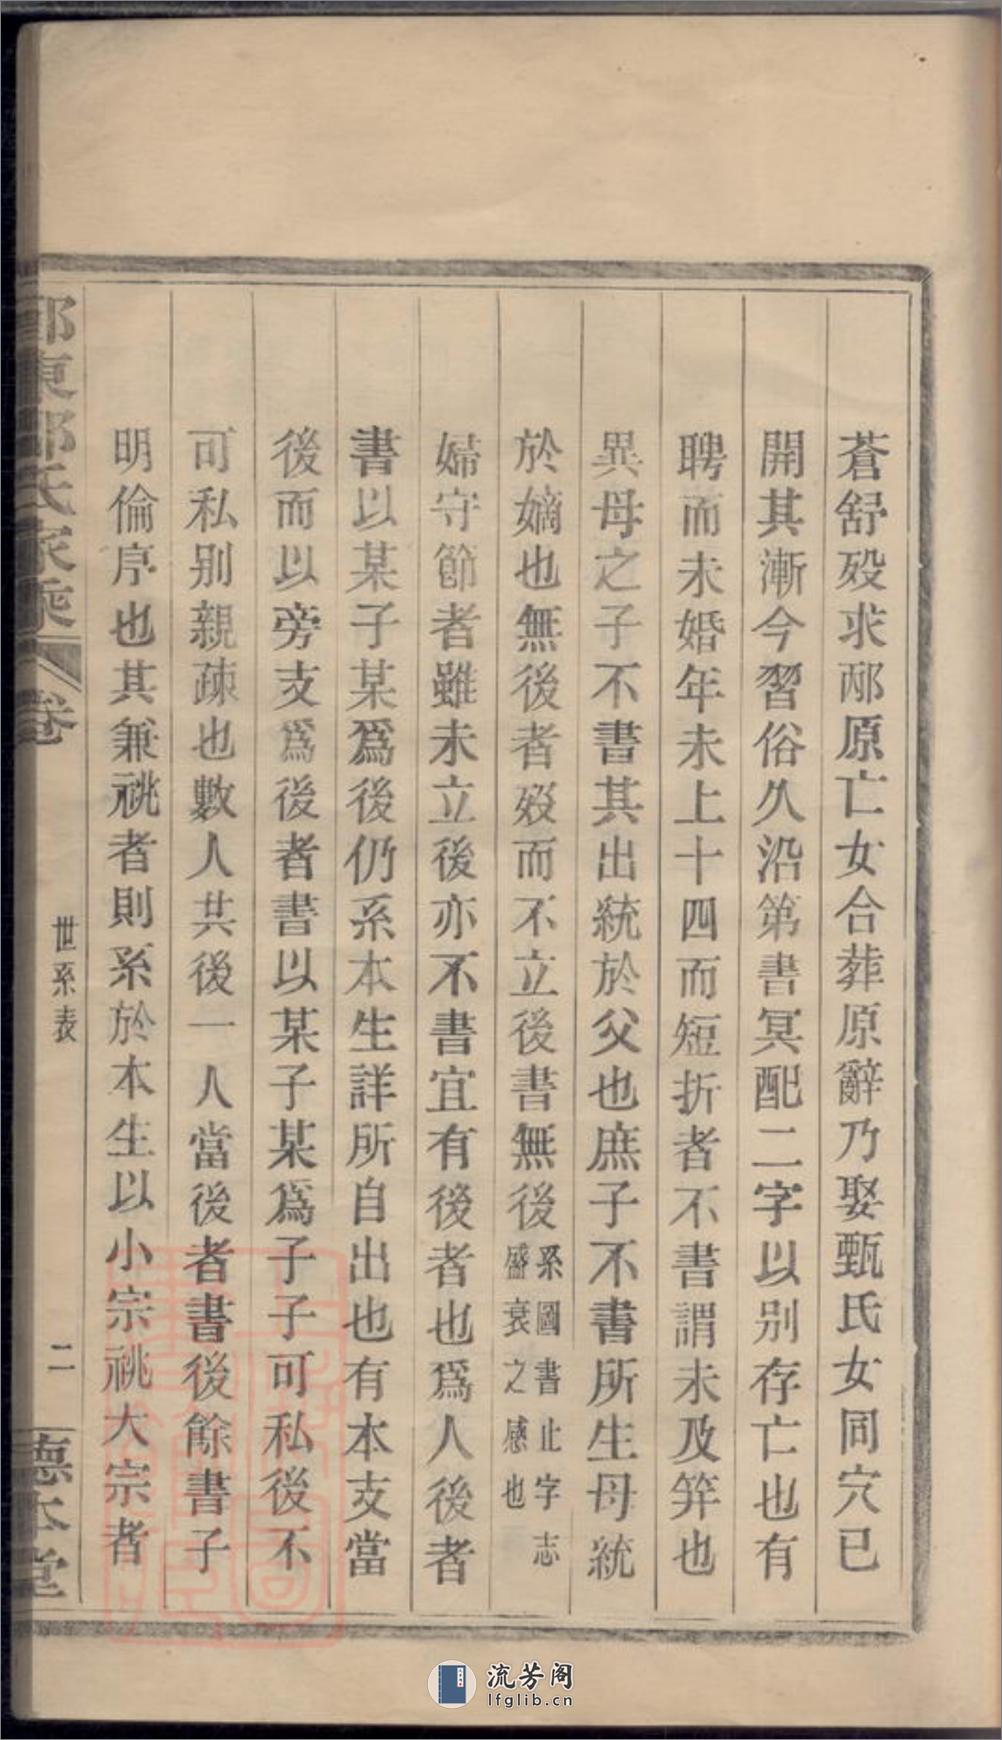 蒼舒歿求邴原亡女合葬原辭乃娶甄氏女同穴已
開其漸今習俗久沿第書冥配二字以别存亡也有
聘而未婚年未上十四而短折者不書謂未及笄也
異母之子不書其出統於父也庶子不書所生母統
於嫡也無後者歿而不立後書無後系圖書止字志盛衰之感也
婦守節者雖未立後亦不書宜有後者也爲人後者
書以某子某爲後仍系本生詳所自出也有本支當
後而以旁支爲後者書以某子某爲子子可私後不
可私别親疎也數人共後一人當後者書後餘書子
明倫序也其兼祧者則系於本生以小宗祧大宗者
東 氏家乘 卷
世系表
二
德本堂
流芳阁
lfglib.cn